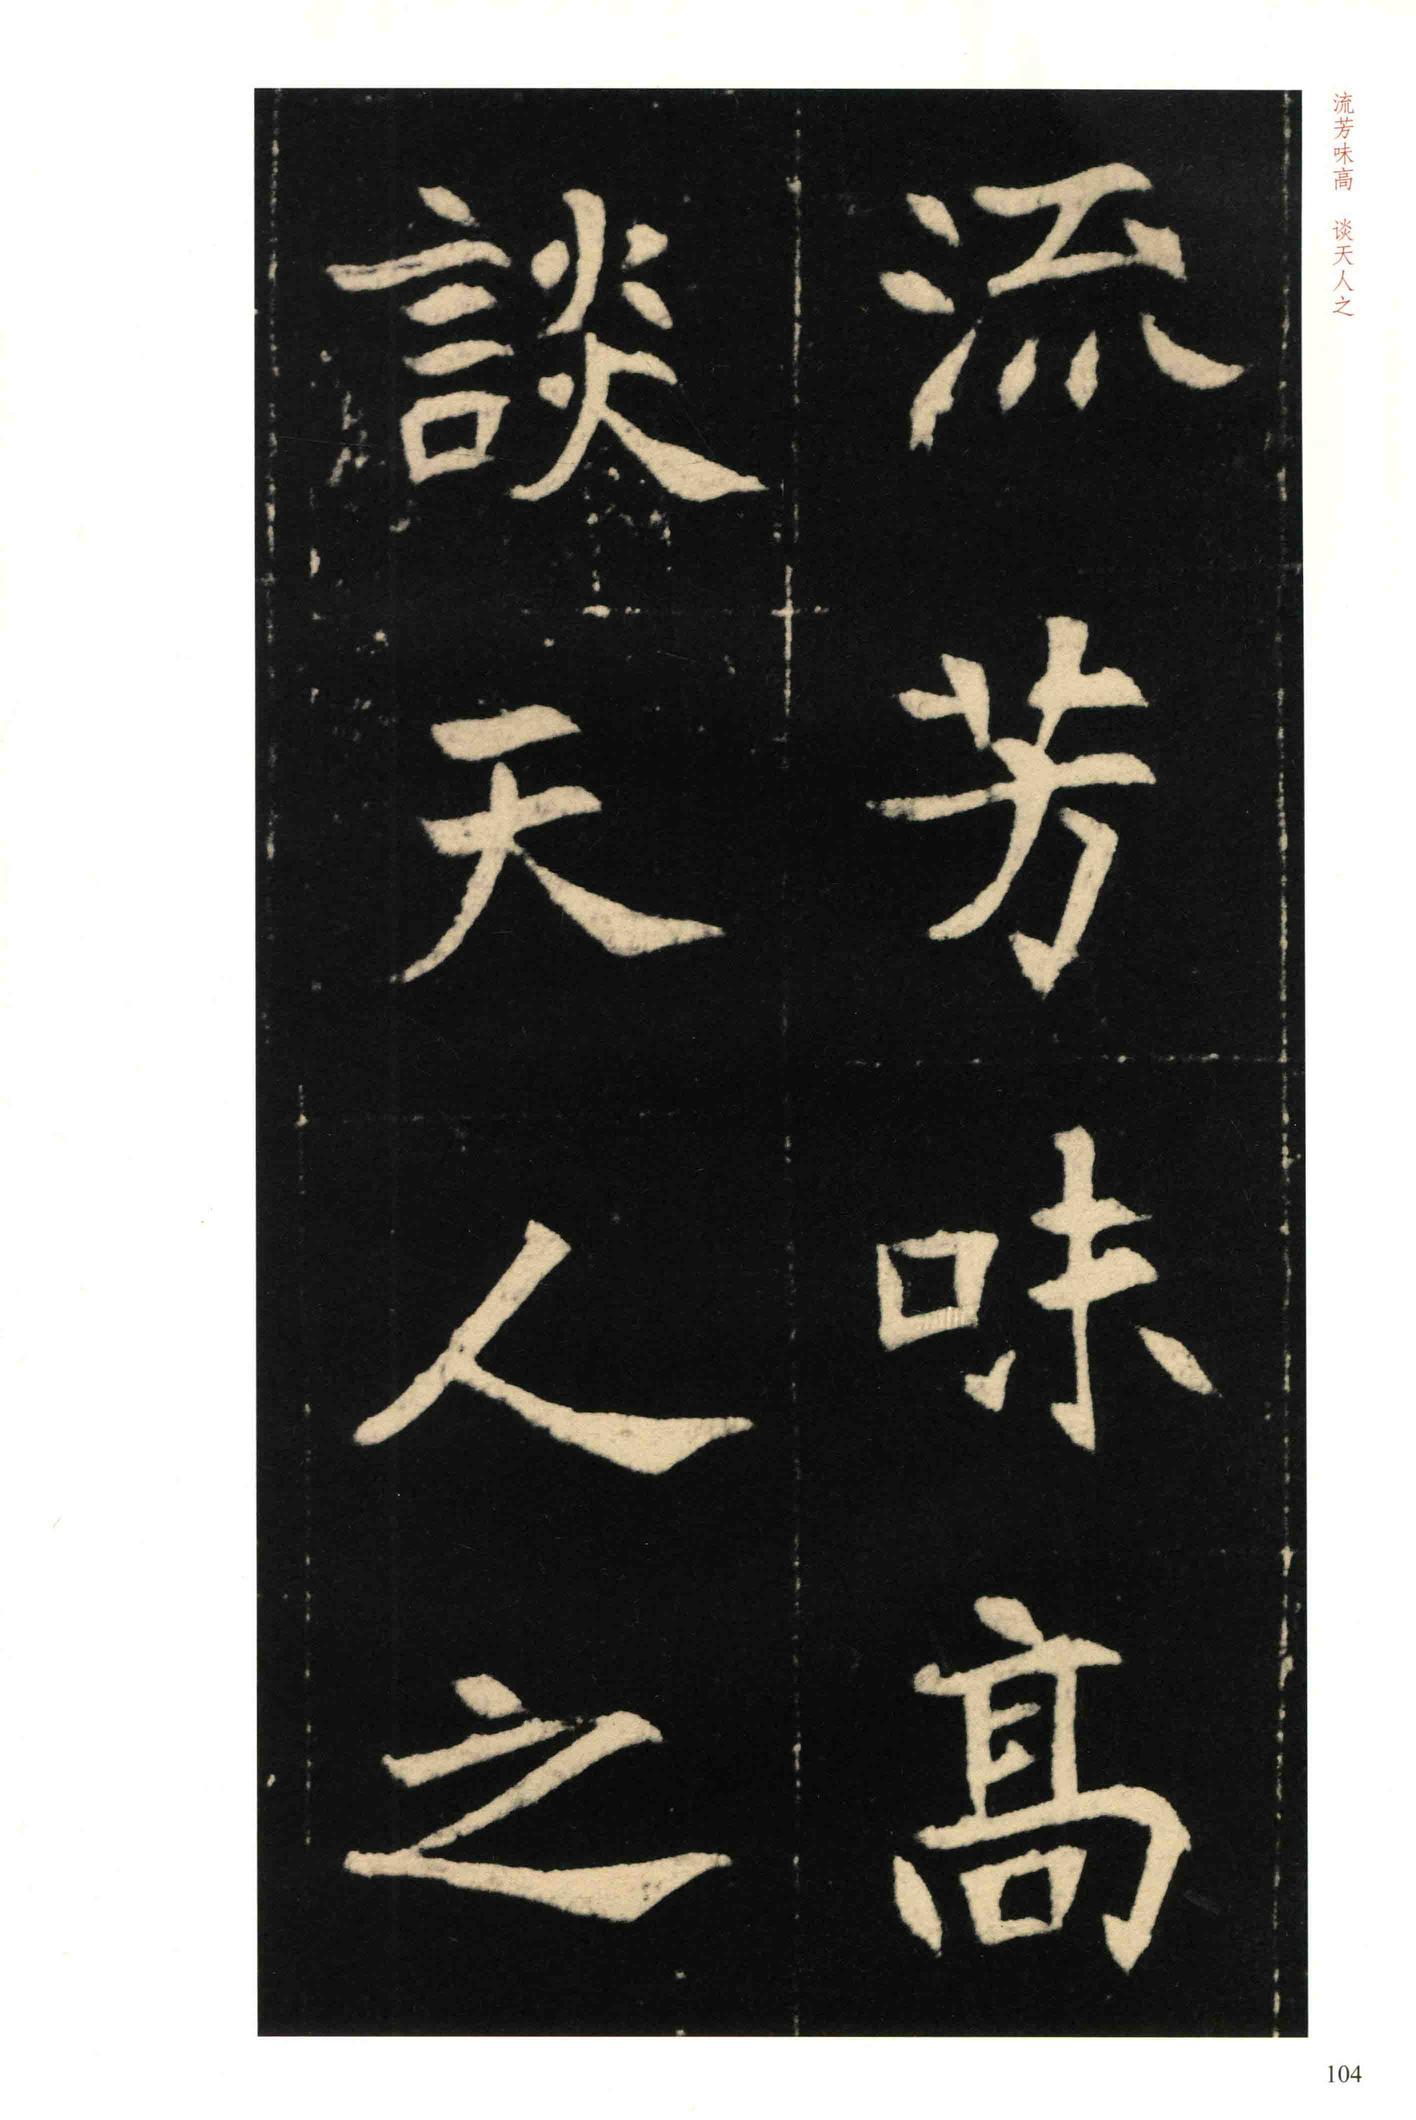 流芳味高　谈天人之
流芳味高
談天人之
104